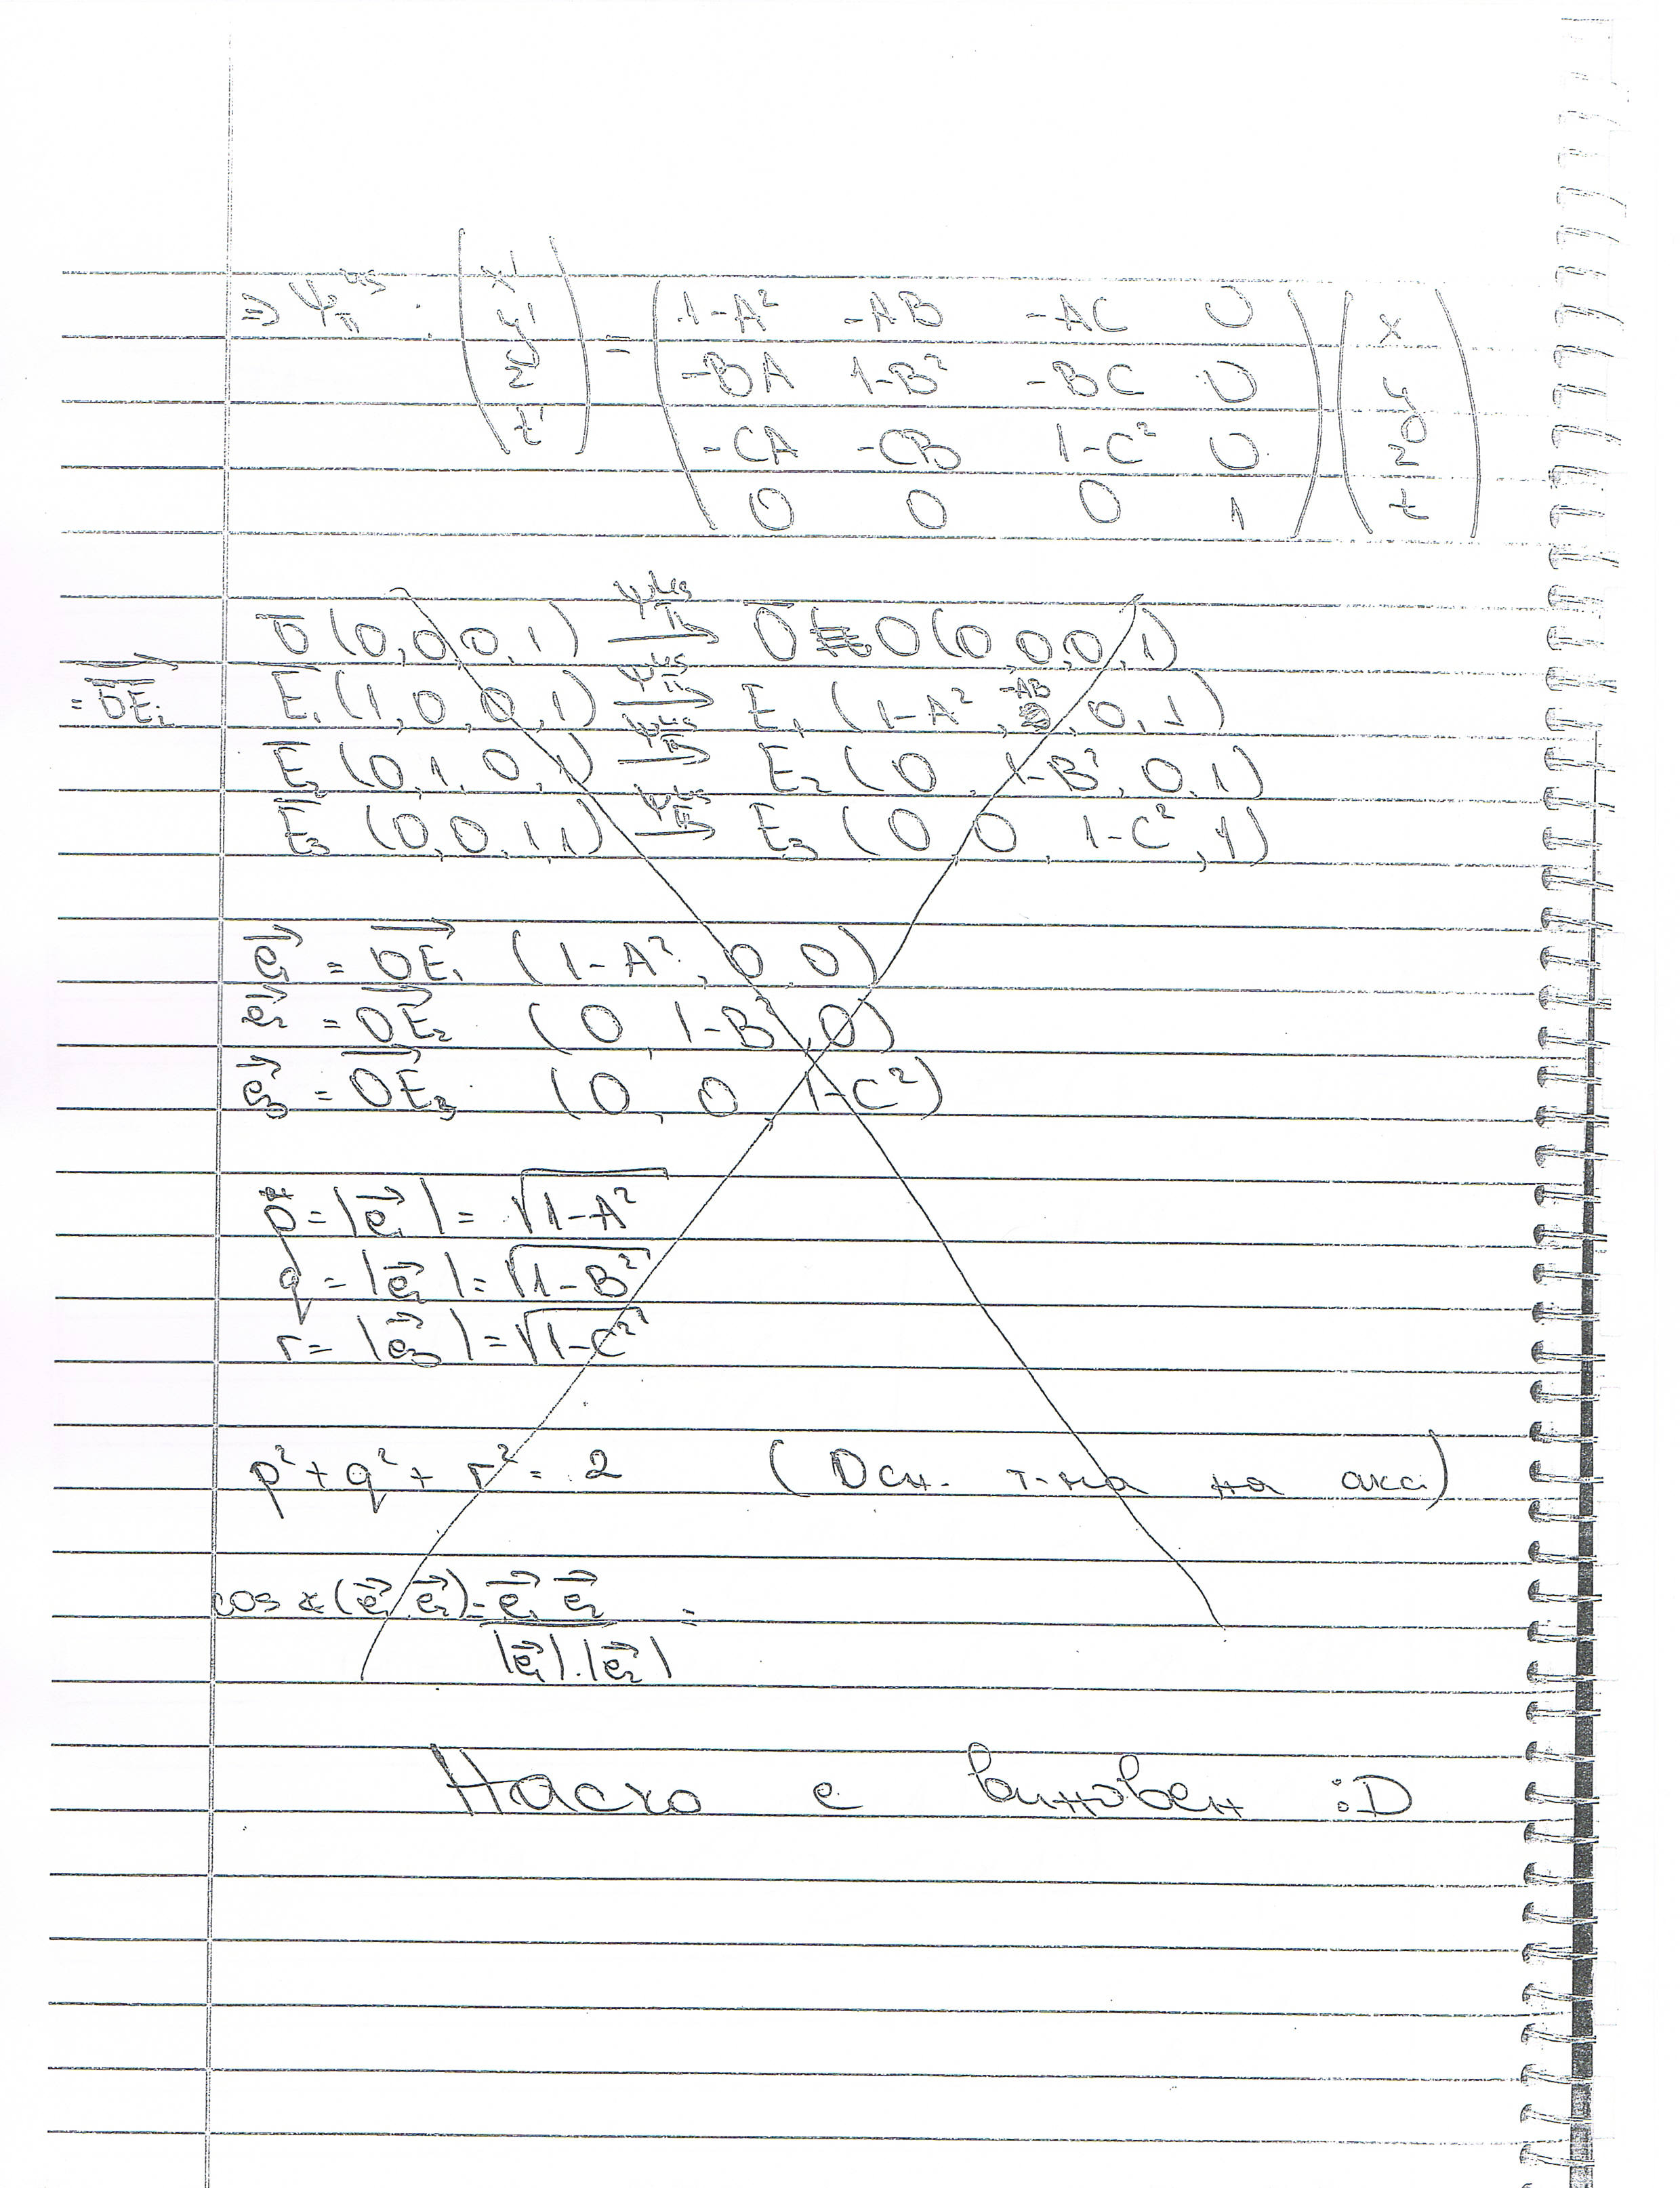 => Ψπ^us : (x' y' z' t') = (1-A² -AB -AC 0
-BA 1-B² -BC 0
-CA -CB 1-C² 0
0 0 0 1) (x y z t)
Ō (0,0,0,1) → Ō O(0 0,0,1)
= OE₁ Ē₁ (1,0,0,1) → E₁ (1-A², -AB, 0, 1)
Ē₂ (0,1,0,1) → E₂ (0, 1-B², 0, 1)
Ē₃ (0,0,1,1) → E₃ (0 0, 1-C², 1)
e₁ = OE₁ (1-A², 0 0)
e₂ = OE₂ (0, 1-B², 0)
e₃ = OE₃ (0, 0 1-C²)
p = |e₁| = √1-A²
q = |e₂| = √1-B²
r = |e₃| = √1-C²
p² + q² + r² = 2 (Осн. т-ма на акс.)
cos ∡(e₁ e₂) = e₁ e₂ =
|e₁|.|e₂|
Наско е виновен :D